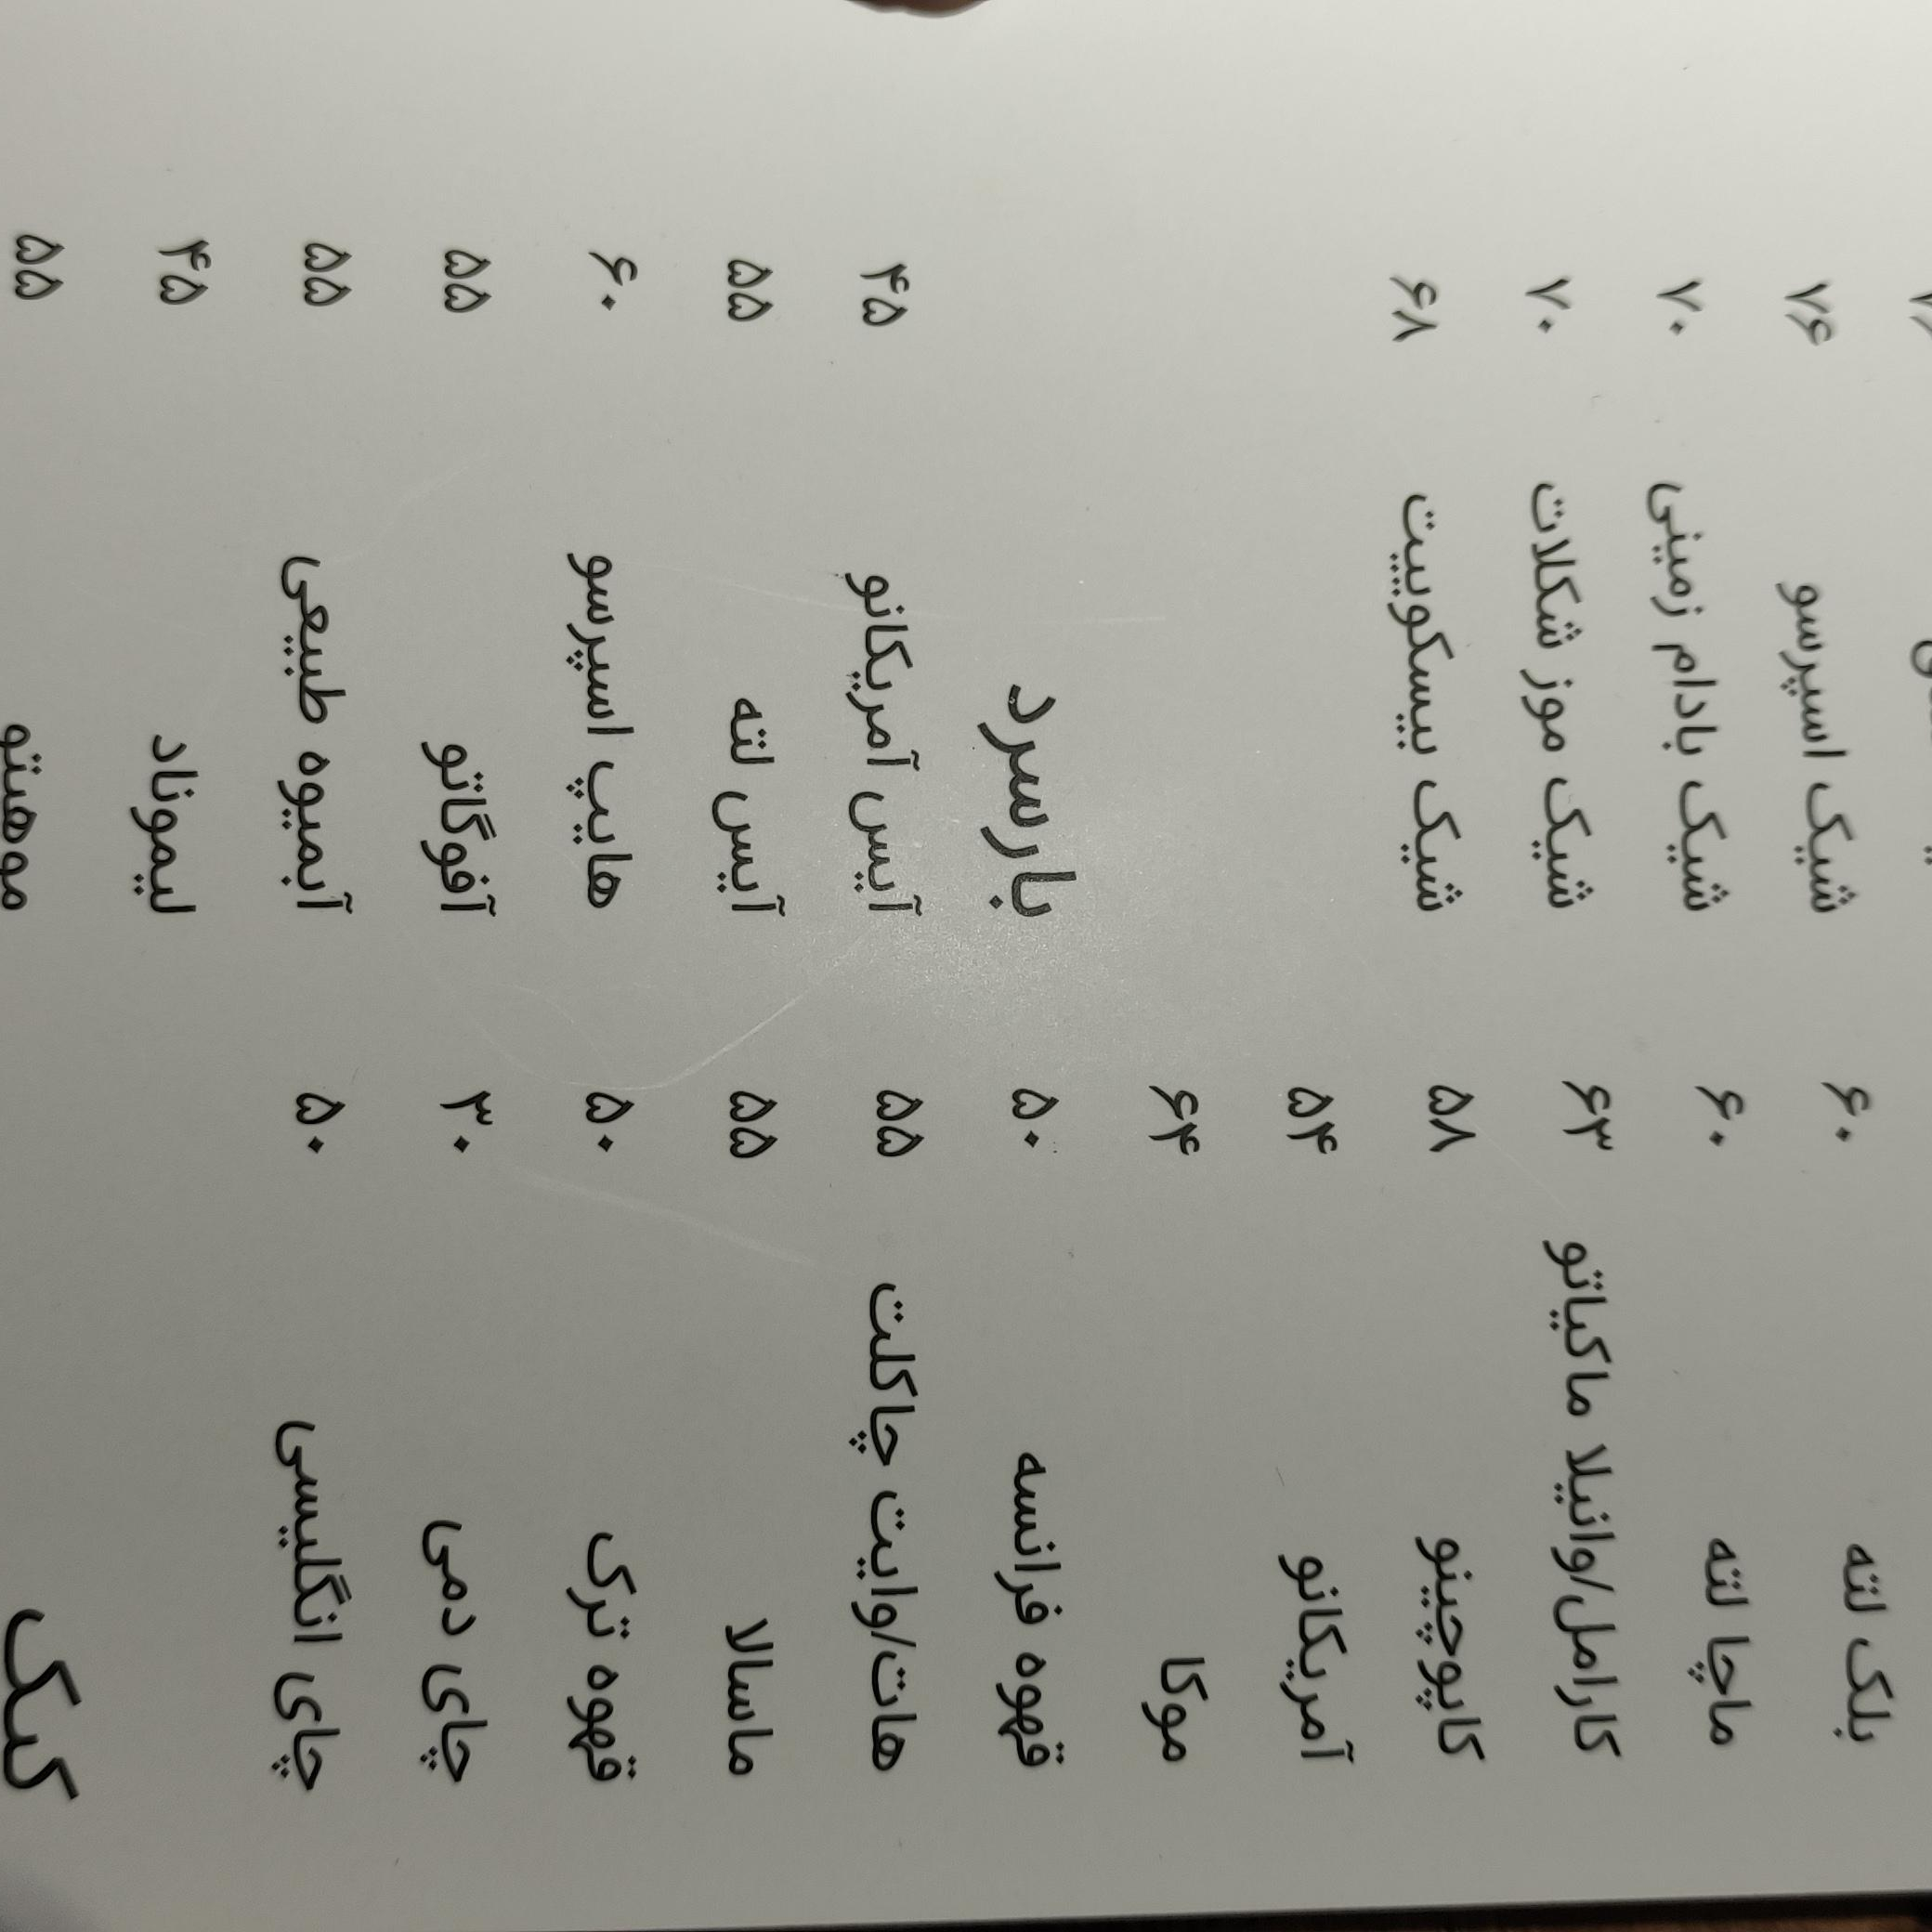 بلک لته ۶۰
ماچا لته ۶۰
کارامل/وانیلا ماکیاتو ۶۳
کاپوچینو ۵۸
آمریکانو ۵۴
موکا ۶۴
قهوه فرانسه ۵۰
هات/وایت چاکلت ۵۵
ماسالا ۵۵
قهوه ترک ۵۰
چای دمی ۳۰
چای انگلیسی ۵۰
کیک
شیک اسپرسو ۷۶
شیک بادام زمینی ۷۰
شیک موز شکلات ۷۰
شیک بیسکوییت ۶۸
بارسرد
آیس آمریکانو ۴۵
آیس لته ۵۵
هایپ اسپرسو ۶۰
آفوگاتو ۵۵
آبمیوه طبیعی ۵۵
لیموناد ۴۵
موهیتو ۵۵